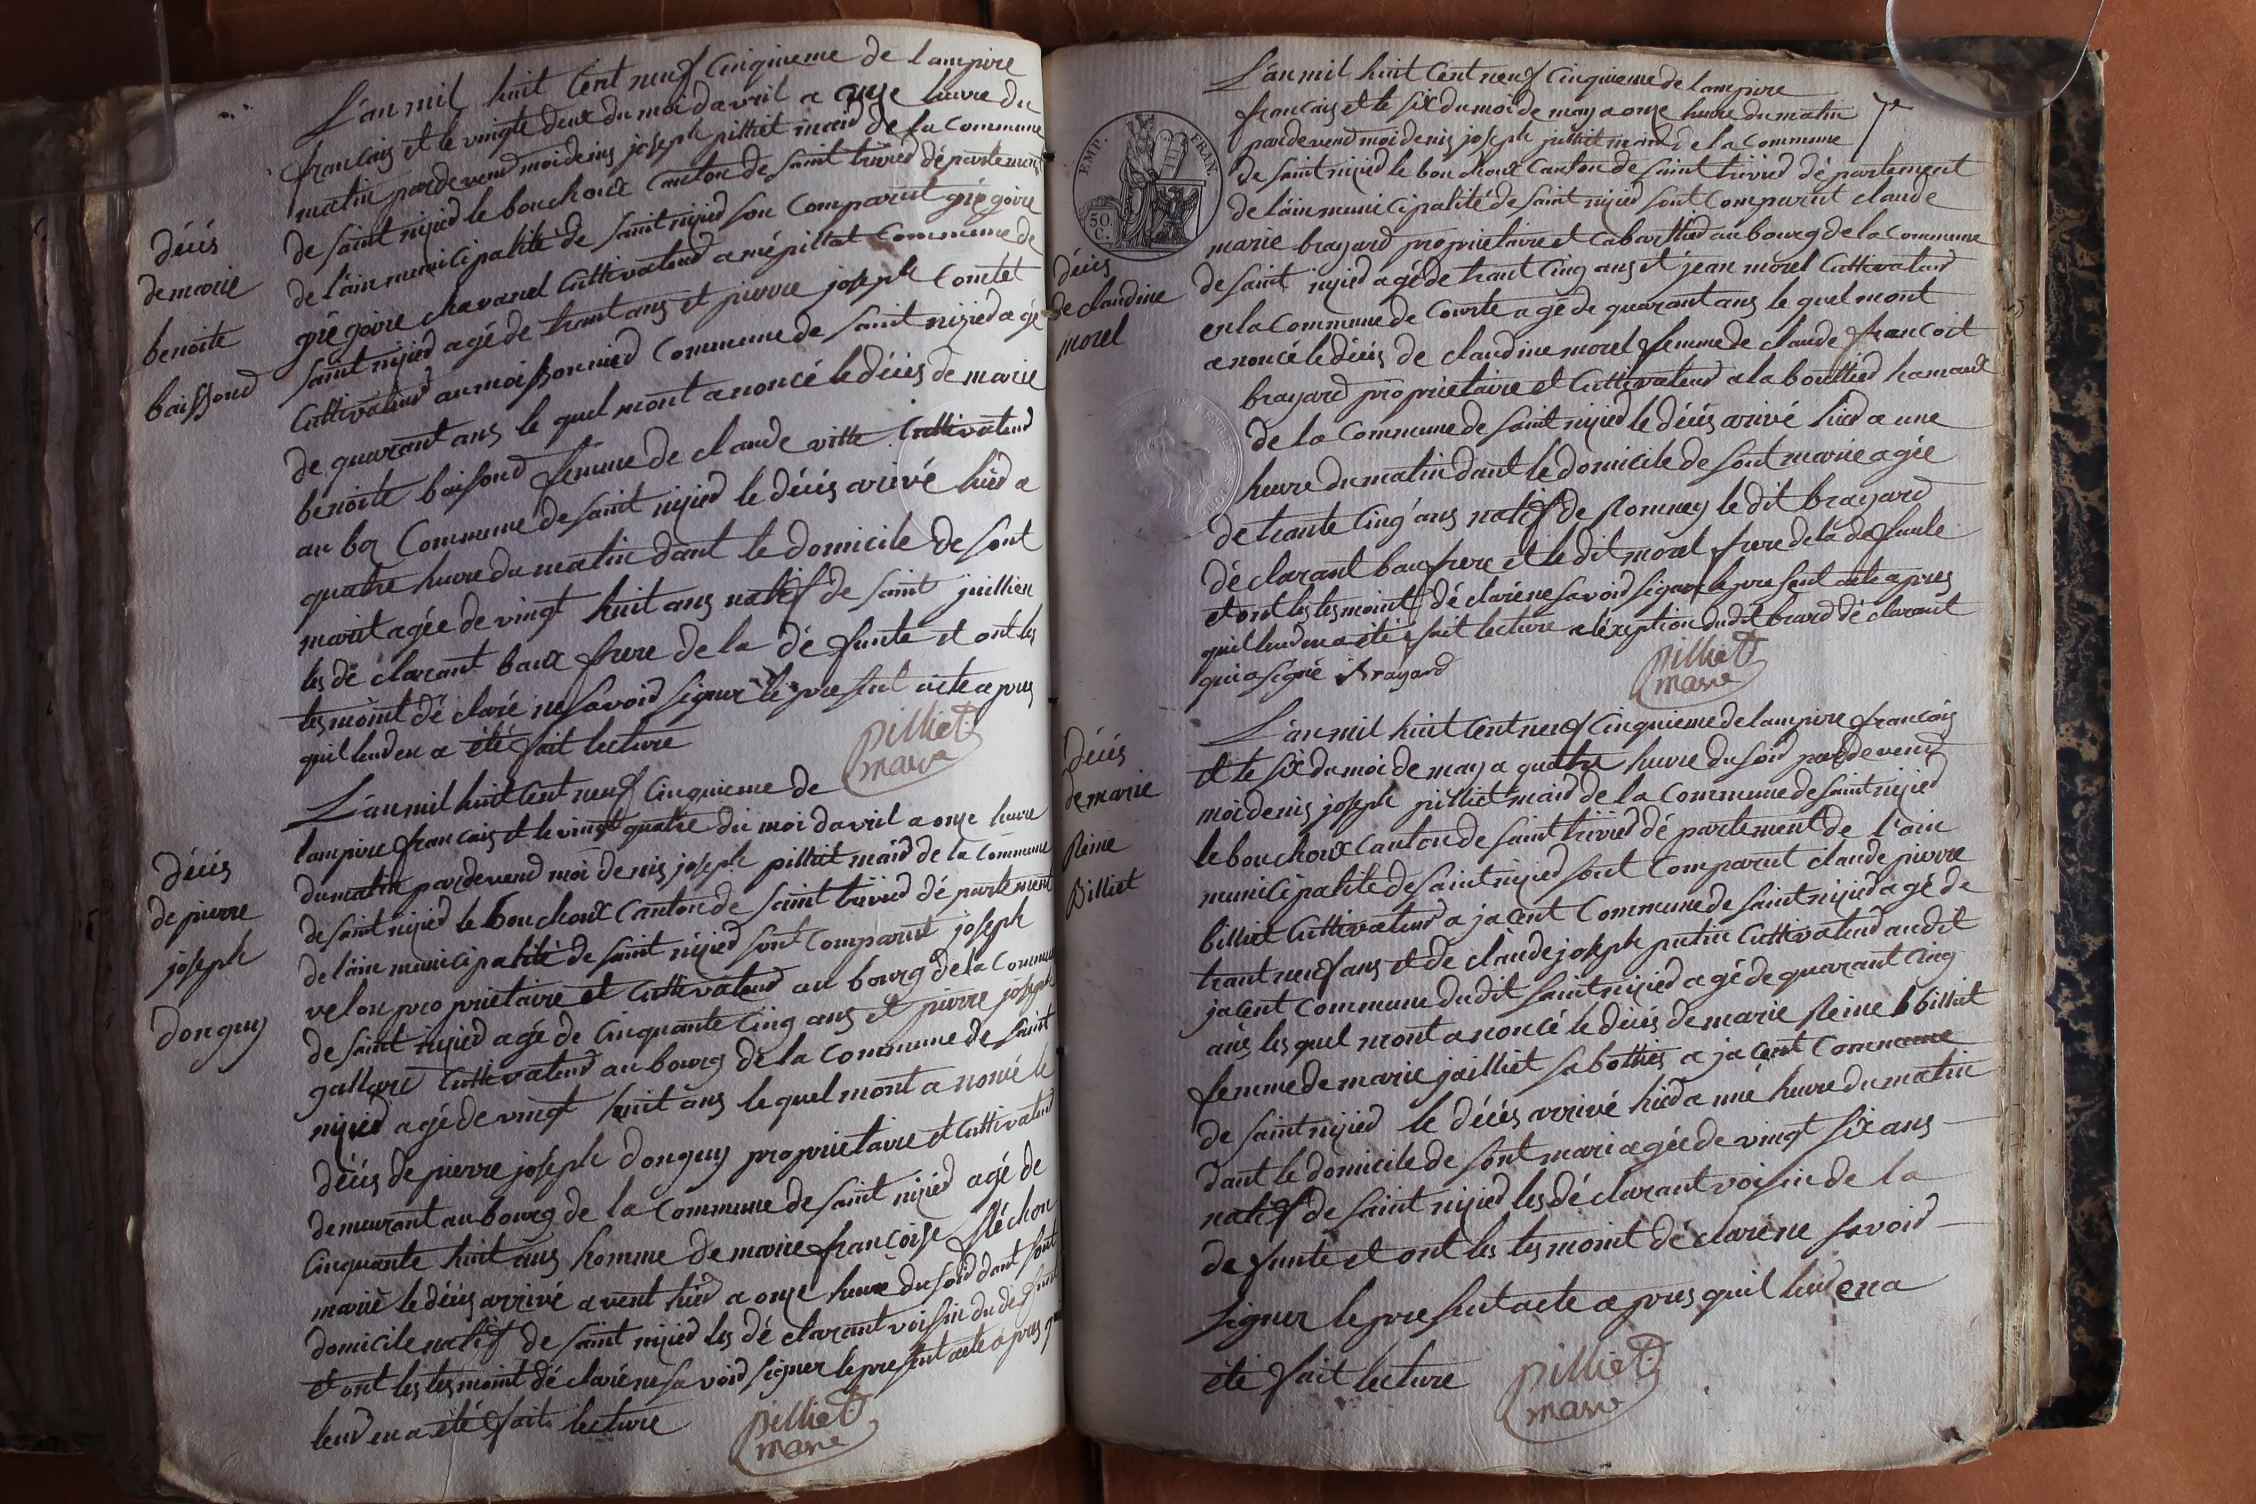 L'an mil huit Cent neuf Cinqieme de lampire
francais et le vingte deux du moi davril a onze heure du
matin pardevend moi denis joseph pilliet maird de la Commune
de saint nizied le bouchoux Canton de saint trivied département
de lain municipalité de saint nizied son Comparut grégoire
grégoire chavanel Cultivateud a mépillat Commune de
saint nizied agé de trant ans et pierre joseph Comtet
Cultivateud au moissonnied Commune de saint nizied agé
de quarant ans le quel mont anoncé le décès de marie
benoite boissoud femme de claude vitte Cultivateud
au boz Commune de saint nizied le décès arivé hied a
quatre heure du matin dant le domicile de sont
marit agée de vingt huit ans natif de saint juillien
les déclarant baux frere de la défunte et ont les
tesmoint déclaré ne savoid signer le present acte apres
quil leud en a été fait lecture
pilliet
maire
décès
de marie
benoite
boissoud
L'an mil huit Cent neuf Cinquieme de
lampire francais et le vingt quatre du moi davril a onze heure
du matin pardevend moi denis joseph pilliet maird de la Commune
de saint nizied le bouchoux Canton de saint trivied département
de lain municipalité de saint nizied sont Comparut joseph
velon proprietaire et Cultivateud au bourg de la Commune
de saint nizied agé de Cinquante Cinq ans et pierre joseph
gallare Cultivateud au bourg de la Commune de saint
nizied agé de vingt huit ans le quel mont anoncé le
décès de pierre joseph donguy proprietaire et Cultivateud
demeurant au bourg de la Commune de saint nizied agé de
Cinquante huit ans homme de marie françoise fléchon
marié le décès arrivé avent hied a onze heure du soid dant sont
domicile natif de saint nizied les déclarant voisin du défunt
et ont les tesmoint déclaré ne savoid signer le present acte apres quil
leud en a été fait lecture
pilliet
maire
décès
de pierre
joseph
donguy
EMP. FRAN.
50 C.
L'an mil huit Cent neuf Cinquieme de lampire
francais et le six du moi de may a onze heure du matin
pardevend moi denis joseph pilliet maird de la Commune
de saint nizied le bouchoux Canton de saint trivied département
de lain municipalité de saint nizied sont Comparut claude
marie brayard proprietaire et Cabarttied au bourg de la Commune
de saint nizied agé de trant Cinq ans et jean morel Cultivateud
en la Commune de Courte agé de quarant ans le quel mont
anoncé le décès de claudine morel femme de claude francoit
brayard proprietaire et Cultivateud a la bouttied hamaux
de la Commune de saint nizied le décès arivé hied a une
heure du matin dant le domicile de sont marie agée
de trante Cinq ans natif de Romney le dit brayard
déclarant baufrere et le dit morel frere de la defunte
et ont les tesmoint déclaré ne savoid signer le present acte apres
quil leud en a été fait lecture a léxeption du dit brard déclarant
qui a signé Brayard
pilliet
maire
décès
de claudine
morel
L'an mil huit Cent neuf Cinquieme de lampire francais
et le six du moi de may a quatre heure du soid pardevend
moi denis joseph pilliet maird de la Commune de saint nizied
le bouchoux Canton de saint trivied département de l'ain
municipalité de saint nizied sont Comparut claude pierre
billiet Cultivateud a jacent Commune de saint nizied agé de
trant neuf ans et de claude joseph putin Cultivateud audit
jacent Commune dudit saint nizied agé de quarant Cinq
ans les quel mont anoncé le décès de marie Reine billiat
femme de marie jailliet sabottied a jacent Commune
de saint nizied le décès arrivé hied a une heure du matin
dant le domicile de sont mari agée de vingt six ans
natif de saint nizied les déclarant voisin de la
defunte et ont les tesmoint déclaré ne savoid
signer le present acte apres quil leud en a
été fait lecture
pilliet
maire
décès
de marie
Reine
Billiet